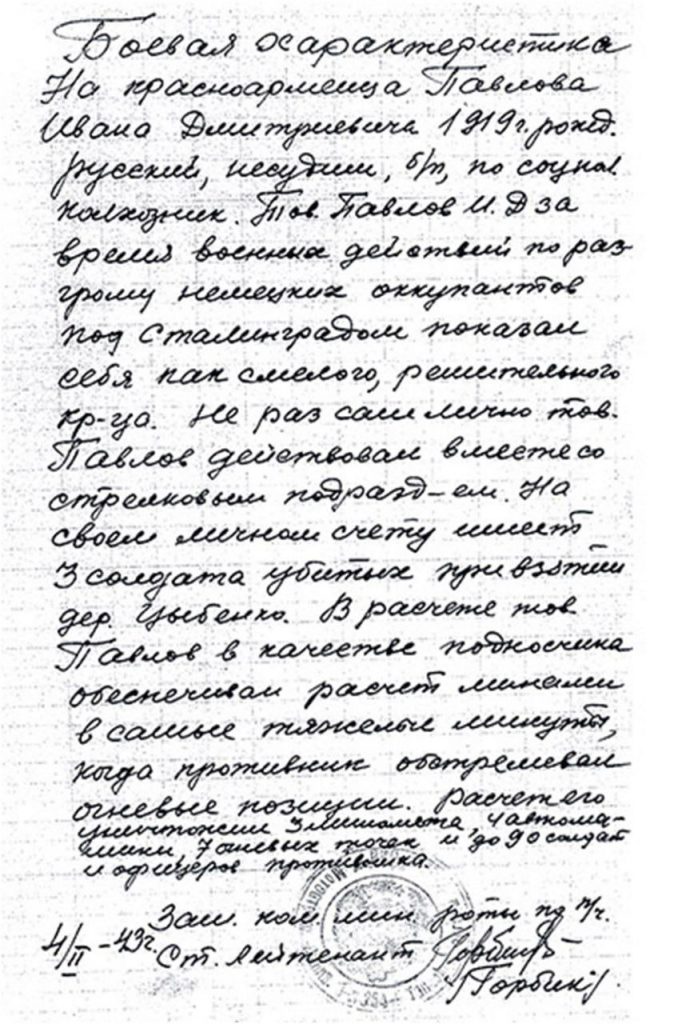 Боевая характеристика
На красноармейца Павлова
Ивана Дмитриевича 1919г. рожд.
русский, несудим, б/п, по социал.
колхозник. Тов. Павлов И. Д за
время военных действий по раз-
грому немецких оккупантов
под Сталинградом показал
себя как смелого, решительного
кр-ца. Не раз сам лично тов.
Павлов действовал вместе со
стрелковым подразд-ем. На
своем личном счету имеет
3 солдата убитых при взятии
дер. Цыбенко. В расчете тов
Павлов в качестве подносчика
обеспечивал расчет минами
в самые тяжелые минуты,
когда противник обстреливал
огневые позиции. Расчет его
уничтожил 3 миномета, 4 автома-
шины, 7 огневых точек и до 90 солдат
и офицеров противника.
Зам. ком. мин роты по п/ч.
4/II-43г. Ст. лейтенант Горбик
/Горбик/